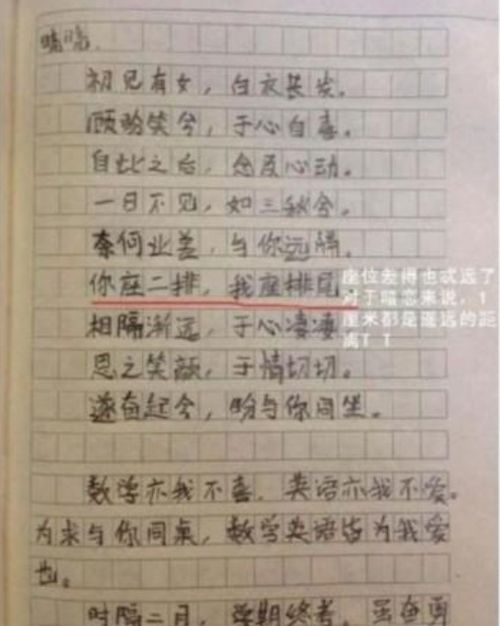 嘀嘀.
初见有女，白衣长发。
顾盼笑兮，于心自喜。
自此之后，念及心动。
一日不见，如三秋兮。
奈何业差，与你远隔。
你座二排，我座排尾
相隔渐远，于心凄凄
思之笑颜，于情切切。
遂奋起兮，盼与你同坐。
数学亦我不喜. 英语亦我不爱。
为求与你同桌，数学英语皆为我爱
也。
时隔二月，学期终考。虽奋勇
座位差得也忒远了
对于暗恋来说，1
厘米都是遥远的距
离T T